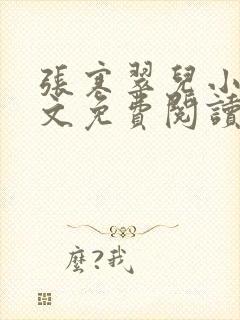 張寒翠兒小
文免費閱讀
麼?我